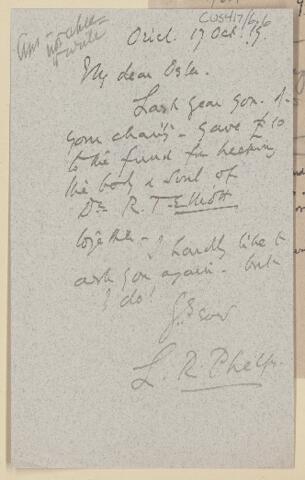 CUS417/6/6
Ans - not able
to write
Oriel. 17 Oct. 15
My dear Osler.
Last year you - of
your charity - gave £10
to the fund for keeping
the body & soul of
Dr. R. T. Elliott
together - I hardly like to
ask you again - but
I do!
Yrs ever
L. R. Phelps.